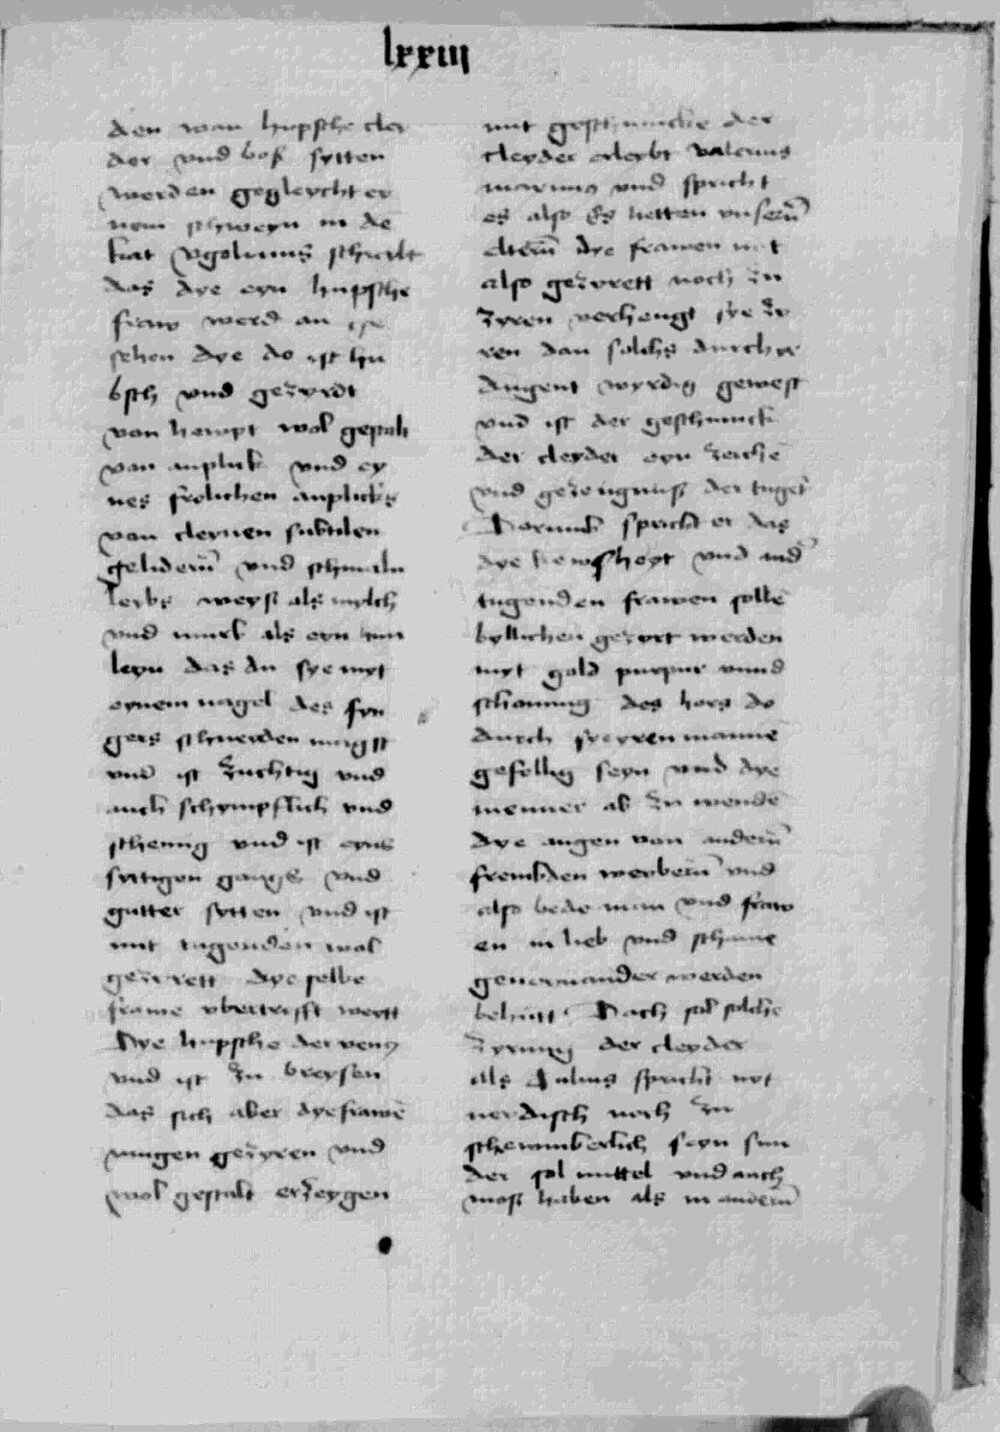 lxxiii
den wan hupsche cley
der vnd boß sytten
werden gegleycht ey
nem schweyn in de
kat vgolinus schreybt
das dye eyn hupsche
fraw werd an ge
sehen dye do ist hu
bsch vnd gezyrdt
von hewpt wol gestalt
von anplick vnd ey
nes frolichen anplicks
von cleynen subtilen
geliderñ vnd schmaln
leybs weyß als mylch
vnd murb als eyn hun
leyn das du sye myt
eynem nagel des fyn
gers schneyden mugst
vnd ist zuchtig vnd
auch schympflich vnd
schemig vnd ist eyns
syttigen gangs vnd
gutter sytten vnd ist
mit tugenden wol
gezyrett dye selbe
frawe vbertrifft weytt
Dye hupsche der venus
vnd ist zu breysen
das sich aber dye frawē
mugen gezyren vnd
wol gestalt erzeygen
mit geschmucke der
cleyder erleybt valerius
maximus vnd spricht
es also Es hetten vnserñ
elterñ dye frawen nit
also gezyrett noch zu
zyren verhengt sye zy
ren dan solichs durch yr
dugent wyrdig gewest
vnd ist der geschmuck
der cleyder eyn zeichē
vnd gezeugnuß der tuget
Dorumb spricht er das
dye kewsheyt vnd and
tugenden frawen sollē
byllichen gezyrt werden
myt gold purpur vnnd
schonung des hors do
durch sye yren mannē
gefellig seyn vnd dye
menner ab zu wendē
dye augen von anderñ
frembden weyberñ vnd
also bede man vnd fraw
en in lieb vnd schame
geneynander werden
behutt Doch sol solche
zyrung der cleyder
als Tulius spricht nyt
neydisch noch zu
schewmberlich seyn sun
der sol mittel vnd auch
moß haben als in anderñ